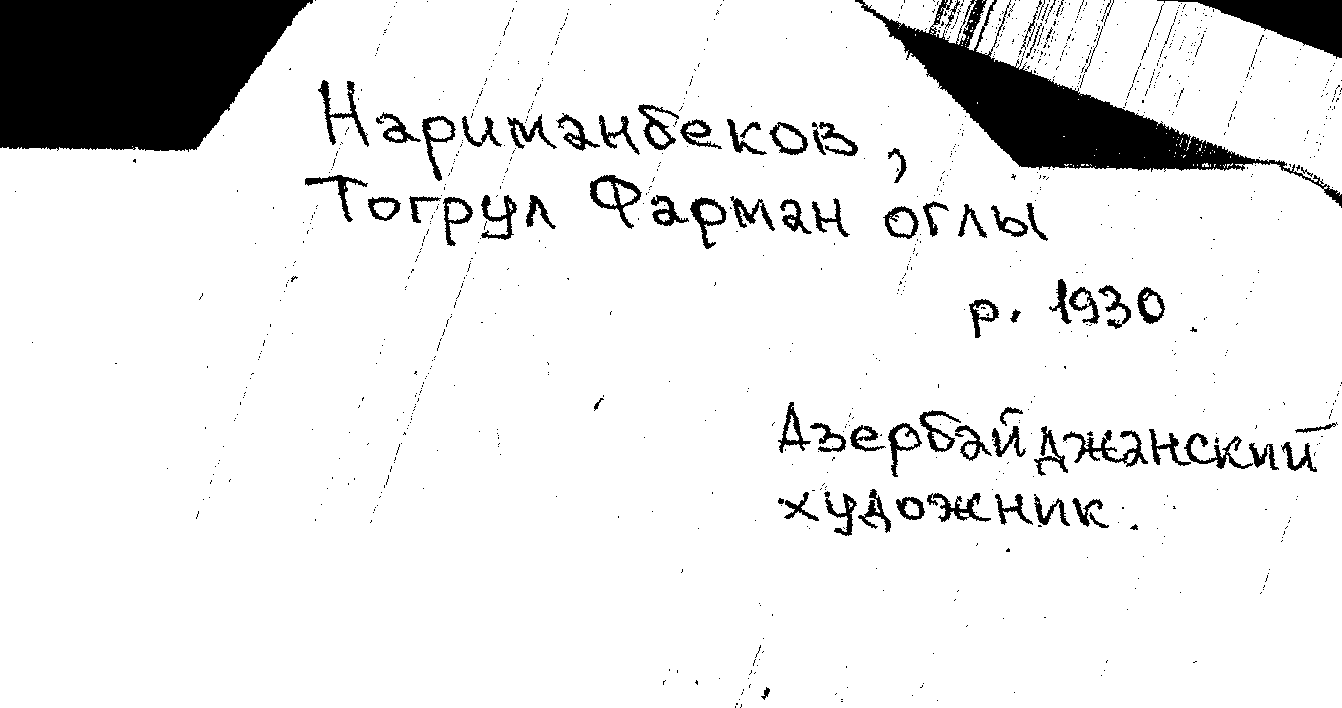 Нариманбеков,
Тогрул Фарман оглы
р. 1930
Азербайджанский
художник.